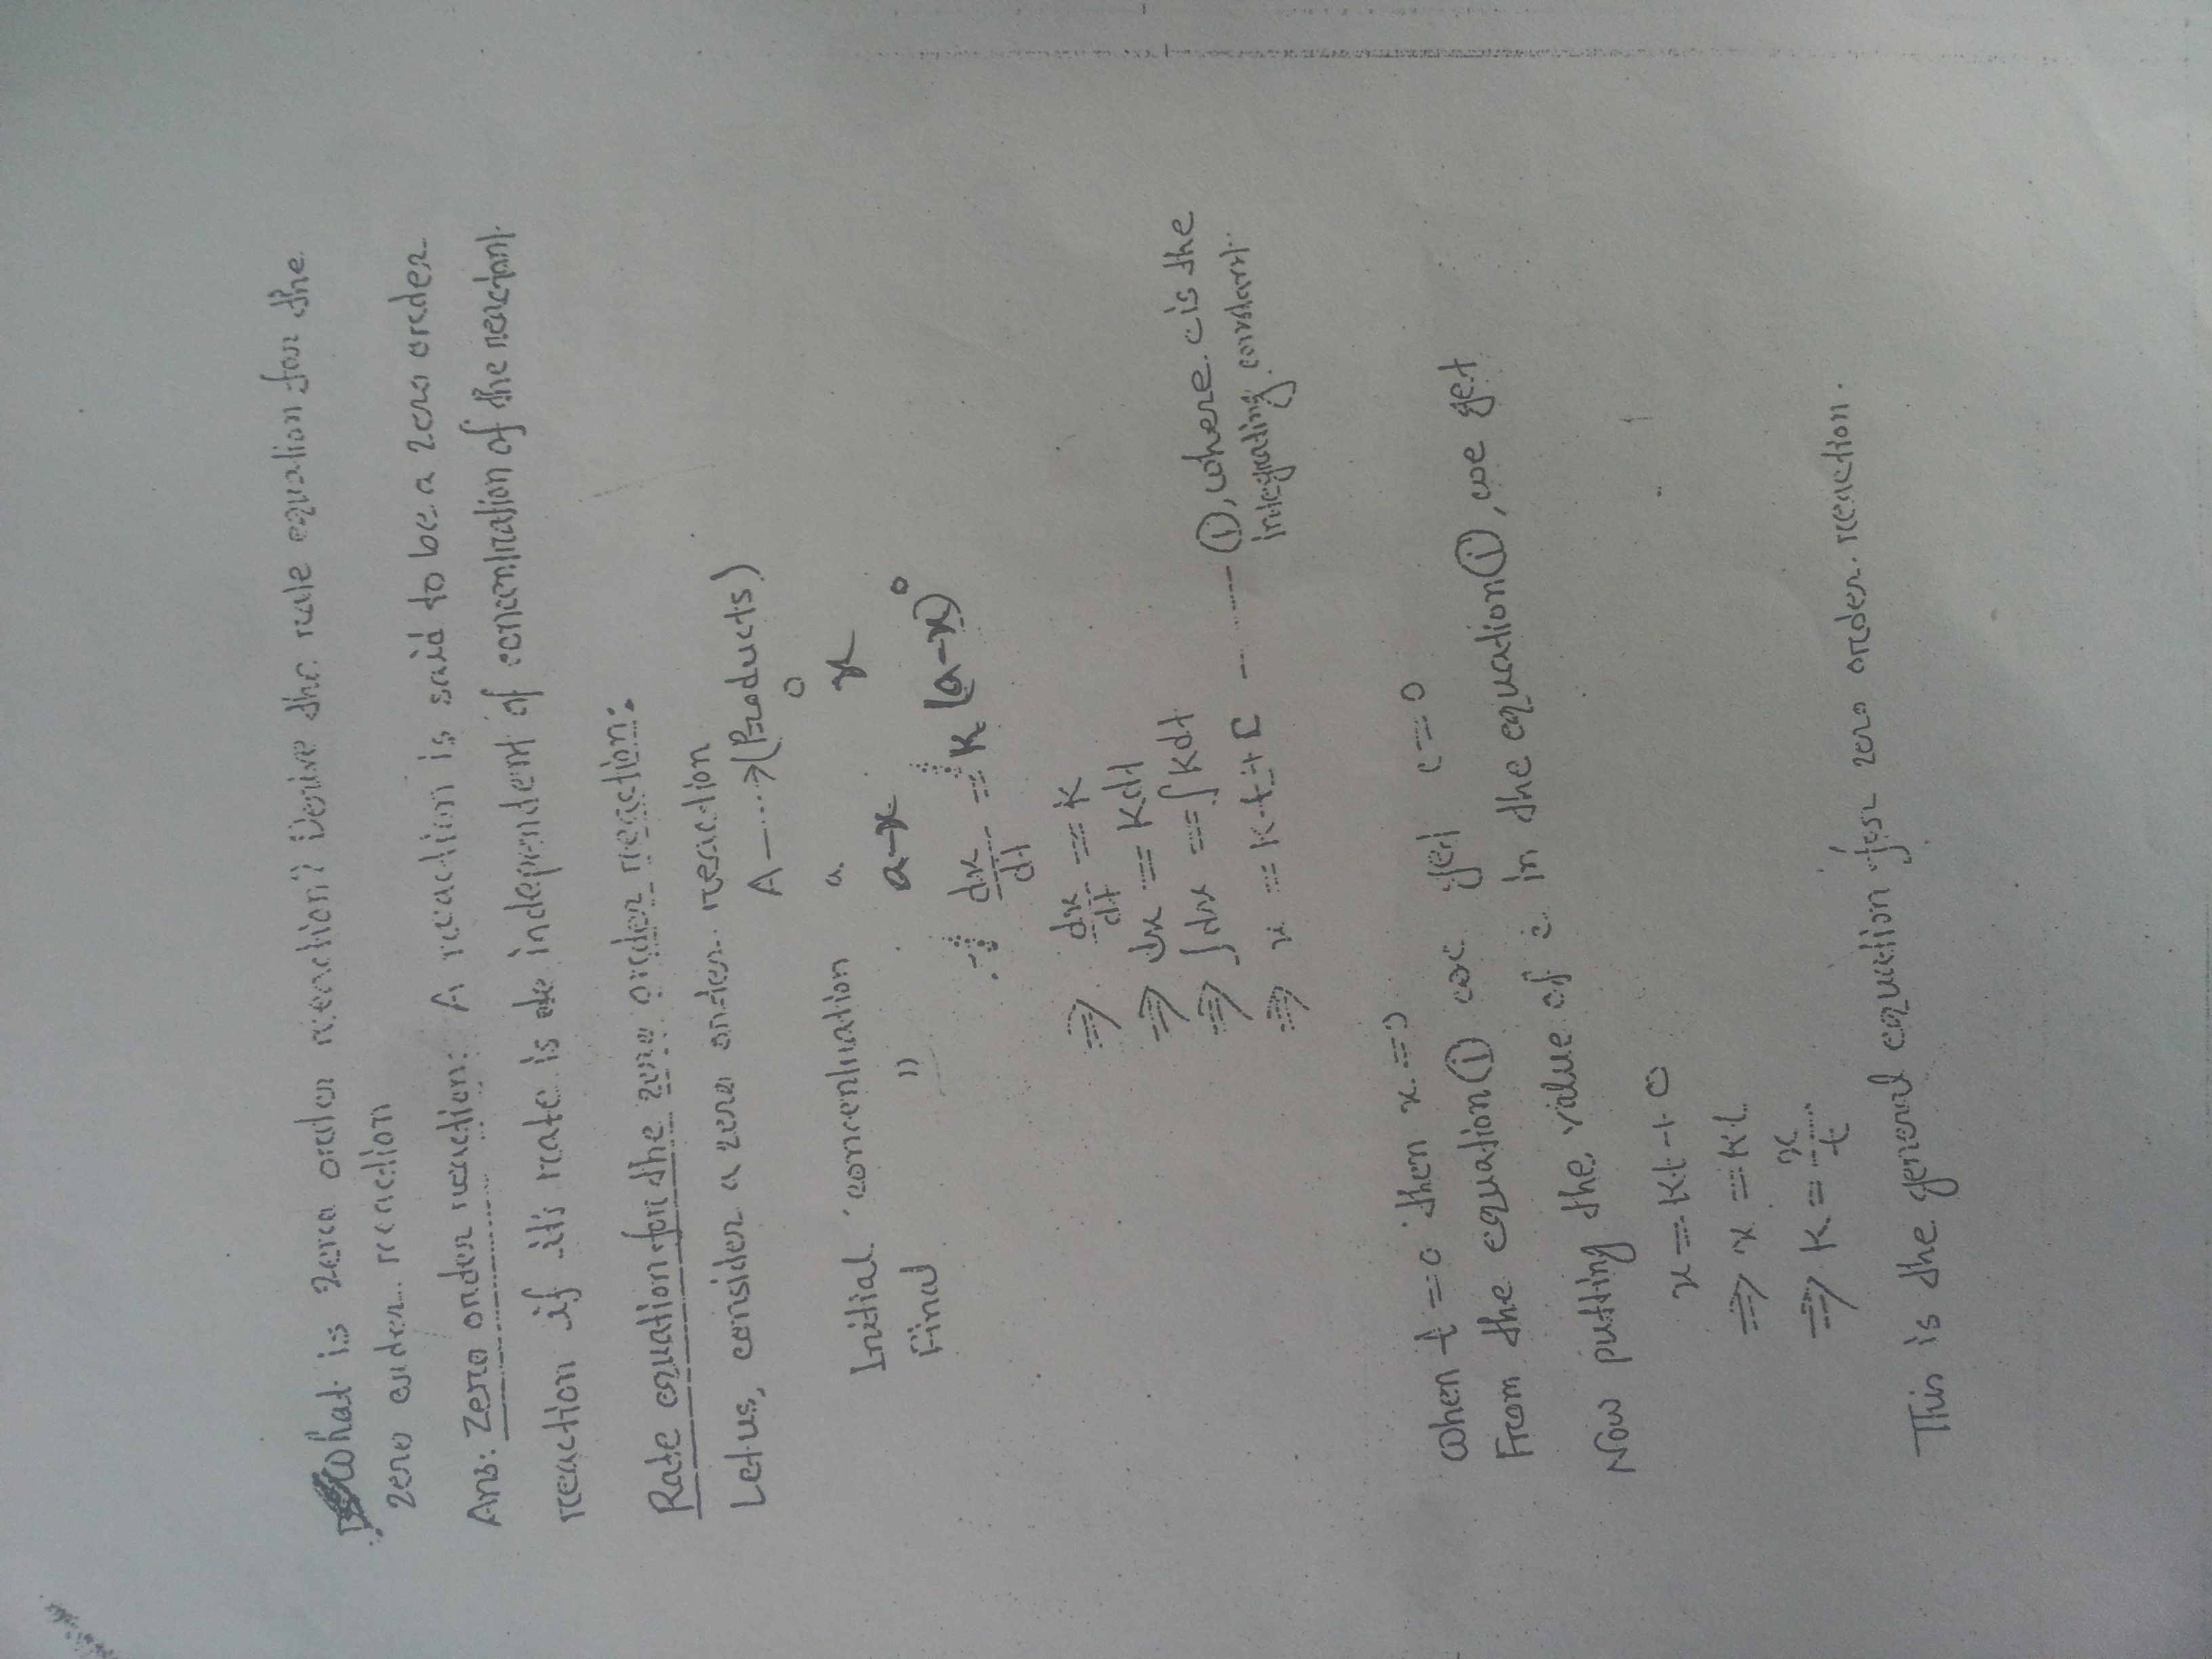 What is zero order reaction? Derive the rate equation for the
zero order reaction
Ans: Zero order reaction: A reaction is said to be a zero order
reaction if it's rate is independent of concentration of the reactant.
Rate equation for the zero order reaction:
Let us, consider a zero order reaction
A ----> (Products)
Initial concentration a 0
Final " a-x x
∴ dx/dt = K (a-x)⁰
⇒ dx/dt = K
⇒ dx = Kdt
⇒ ∫dx = ∫Kdt
⇒ x = Kt + C ------ ①, where c is the
integrating constant.
When t = 0 then x = 0
From the equation ① we get c = 0
Now putting the value of c in the equation ①, we get
x = Kt + 0
⇒ x = Kt
⇒ K = x/t
This is the general equation for zero order reaction.